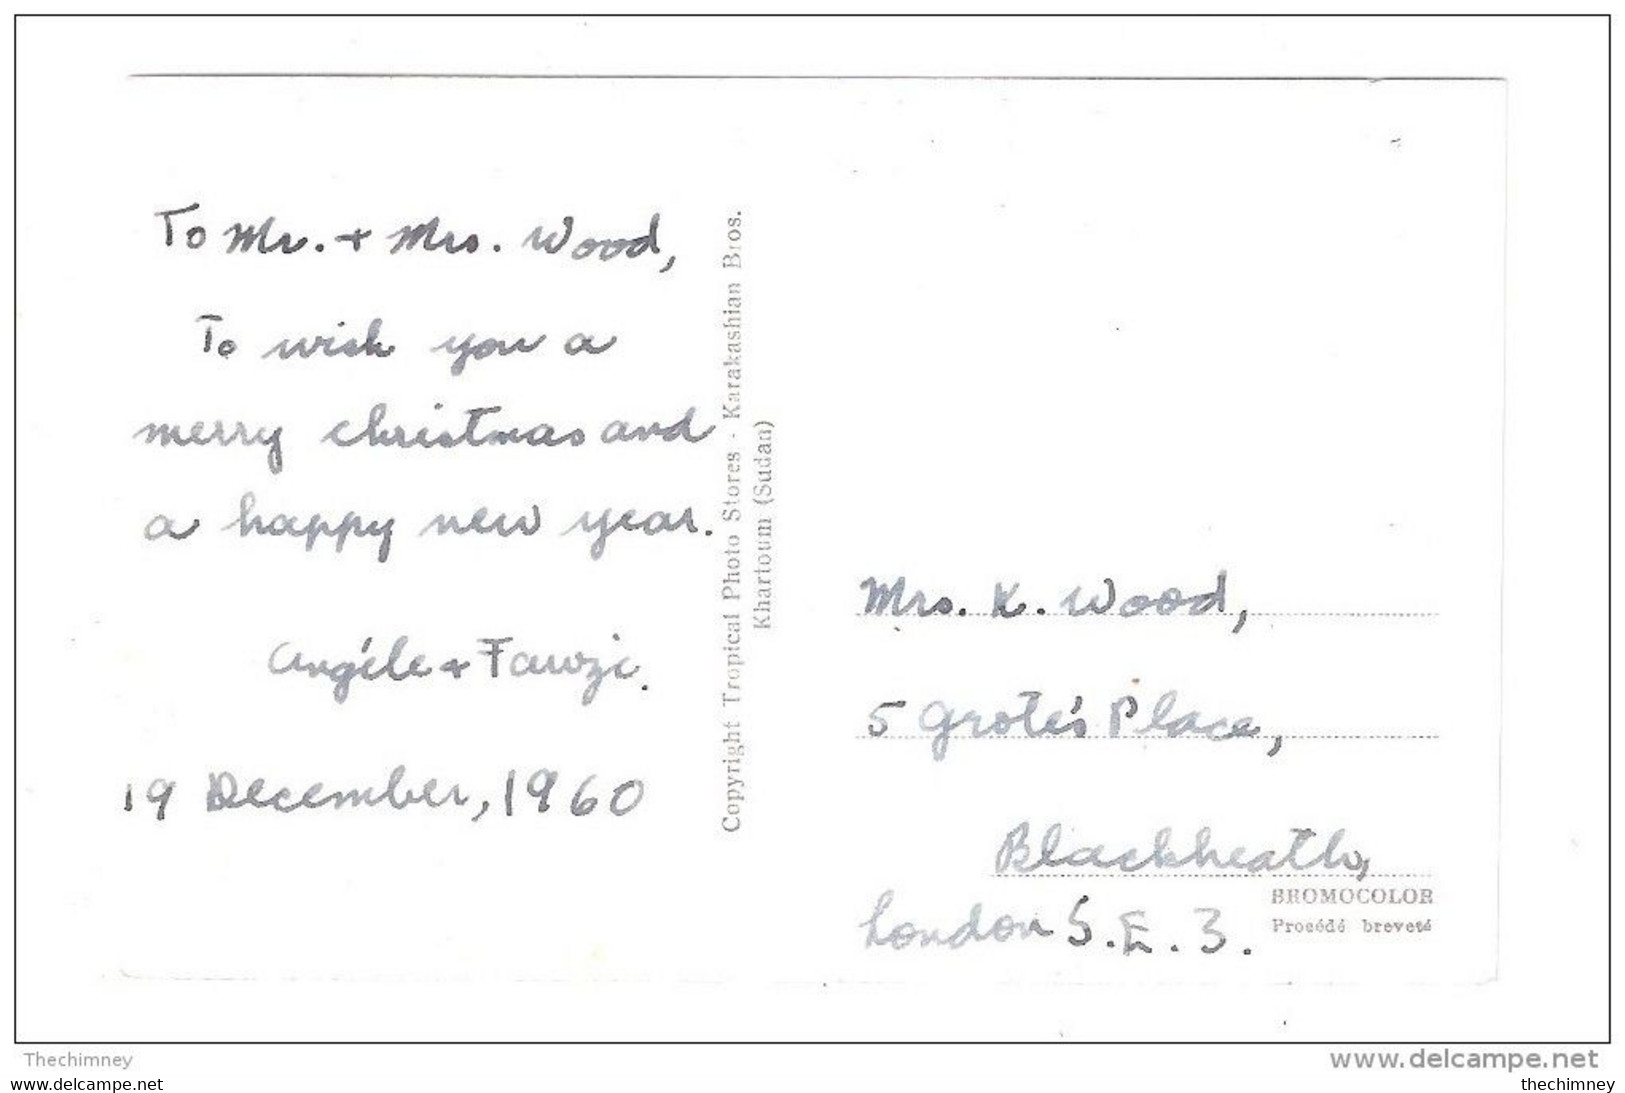 To Mr. + Mrs. Wood,
To wish you a
merry christmas and
a happy new year.
Angéle + Fawzi.
19 December, 1960
Copyright Tropical Photo Stores - Karakashian Bros.
Khartoum (Sudan)
Mrs. K. Wood,
5 Grote's Place,
Blackheath,
London S.E.3.
BROMOCOLOR
Procédé breveté
Thechimney
www.delcampe.net
www.delcampe.net
thechimney